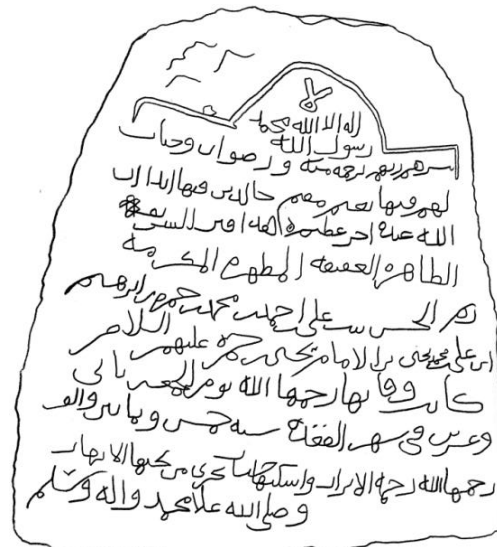 لا
اله الا الله محمد
رسول الله
يبشرهم ربهم برحمة منه ورضوان وجنات
لهم فيها نعيم مقيم خالدين فيها ابدا ان
الله عنده اجر عظيم هذا قبر
الطاهرة العفيفة المطهرة المكرمة
الحسن بنت علي احمد بن محمد بن ابرهيم
ابن علي محمد يحيى بن الامام يحيى حمزة عليهم السلام
كانت وفاتها رحمها الله يوم الجمعة ثاني
وعشرين في شهر القعدة سنة خمس والف
رحمها الله رحمة الابرار واسكنها جنات تجري من تحتها الانهار
وصلى الله علا محمد واله وسلم